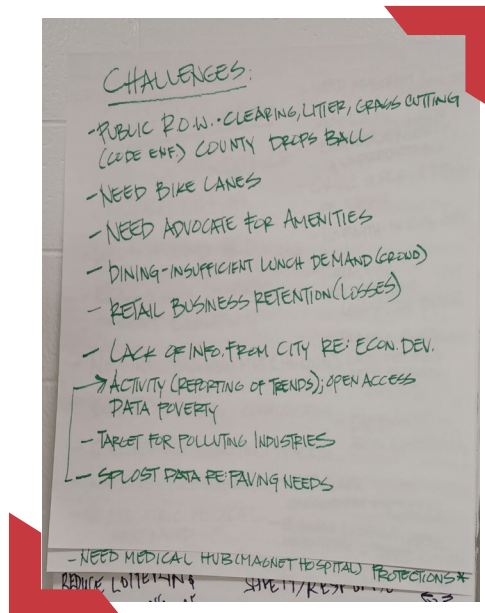 CHALLENGES:
-PUBLIC R.O.W.: CLEARING, LITTER, GRASS CUTTING
(CODE ENF.) COUNTY DROPS BALL
-NEED BIKE LANES
-NEED ADVOCATE FOR AMENITIES
-DINING-INSUFFICIENT LUNCH DEMAND (CROWD)
-RETAIL BUSINESS RETENTION (LOSSES)
-LACK OF INFO. FROM CITY RE: ECON. DEV.
→ACTIVITY (REPORTING OF TRENDS); OPEN ACCESS
DATA POVERTY
-TARGET FOR POLLUTING INDUSTRIES
-SPLOST DATA RE: PAVING NEEDS
-NEED MEDICAL HUB (MAGNET HOSPITAL) PROTECTIONS*
REDUCE LOITERING